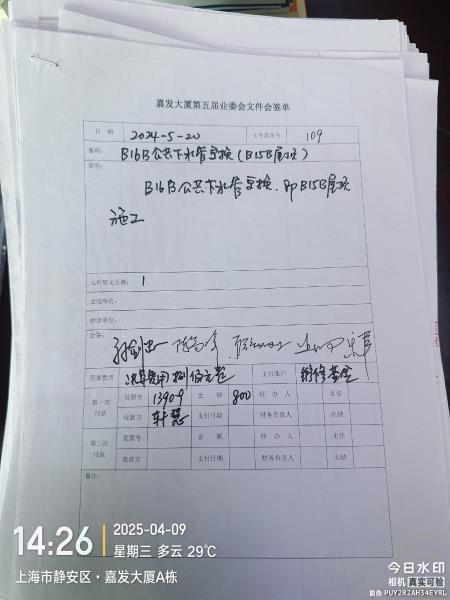 嘉发大厦第五届业委会文件会签单
日期 2024-5-20 文件流水号 109
事项: B16B公共下水管更换(B15B屋顶)
说明:
B16B公共下水管更换,即B15B屋顶
施工
文件附文页数: 1
主送单位:
抄送单位:
会签:
预算费用 捌佰元整 支出账户 维修基金
第一次付款 发票号 13909 金额 800 经办人 主任
收款方 支付日期 财务负责人 出纳
第二次付款 发票号 金额 经办人 主任
收款方 支付日期 财务负责人 出纳
备注:
14:26 2025-04-09
星期三 多云 29℃
上海市静安区·嘉发大厦A栋
今日水印
相机 真实可验
防伪 PUY2R2AH34EYRL